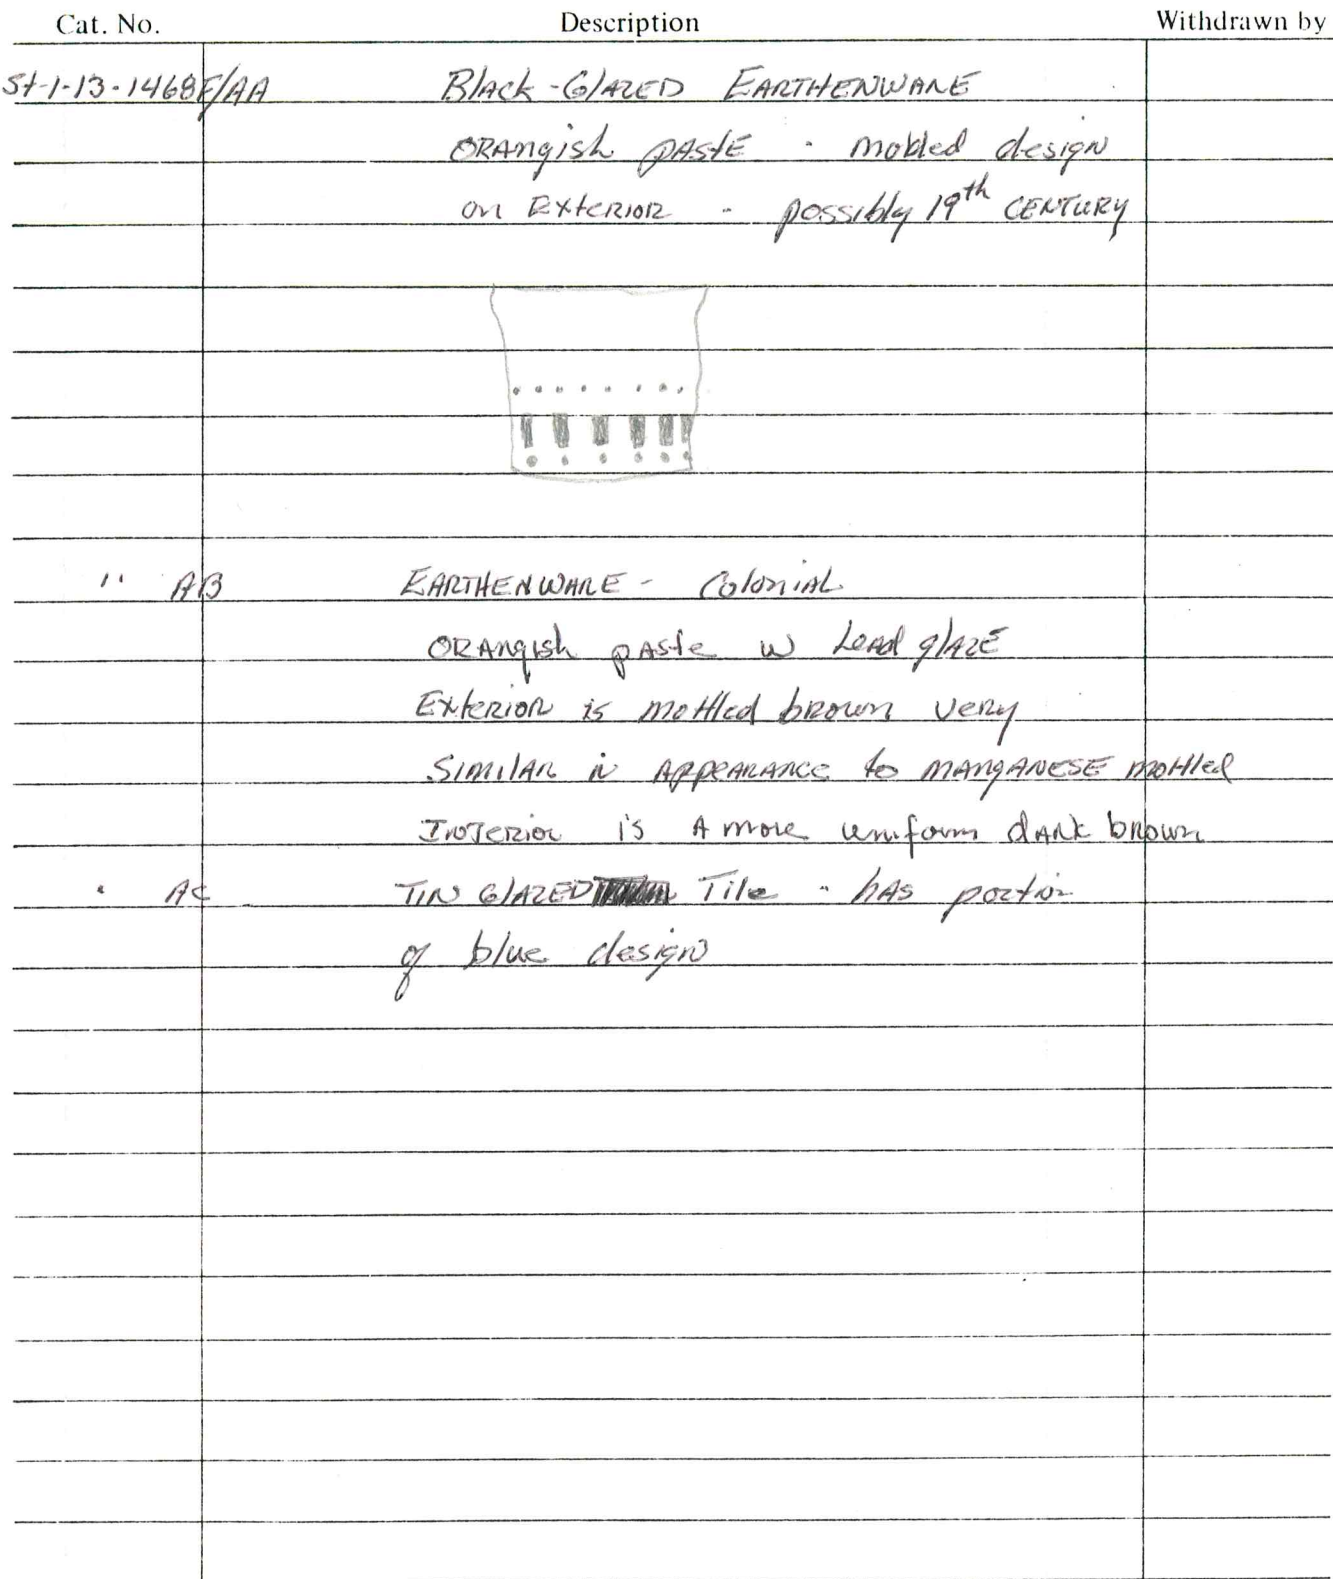 Cat. No. Description Withdrawn by
St-1-13-1468F/AA Black-Glazed Earthenware
Orangish paste - molded design
on Exterior - possibly 19th Century
" AB Earthenware - Colonial
Orangish paste w Lead glaze
Exterior is mottled brown very
Similar in appearance to manganese mottled
Interior is A more uniform dark brown
" AC Tin Glazed Tile - has portion
of blue design